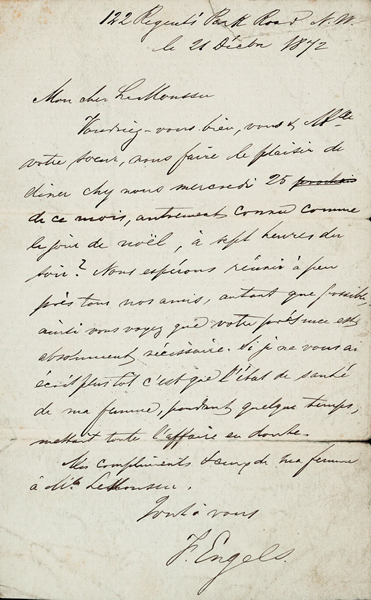 122 Regent's Park Road, N.W.
le 21 Décbr 1872
Mon cher LeMoussu
Voudriez-vous bien, vous & Mlle
votre sœur, nous faire le plaisir de
diner chez nous mercredi 25 prochain
de ce mois, autrement connu comme
le jour de noël, à sept heures du
soir? Nous espérons réunir à peu
près tous nos amis, autant que possible,
ainsi vous voyez que votre présence est
absolument nécessaire. Si je ne vous ai
écrit plus tôt c'est que l'état de santé
de ma femme, pendant quelque temps,
mettait toute l'affaire en doute.
Mes compliments & ceux de ma femme
à Mlle LeMoussu.
Tout à vous
F. Engels.